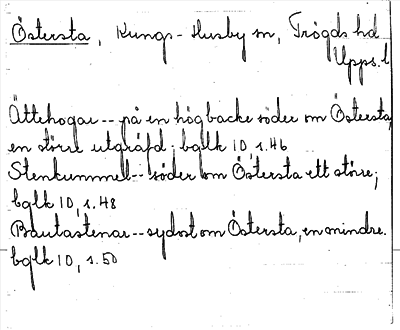 Östersta, Kungs-Husby sn, Trögds hd
Upps. l
Ättehögar -- på en hög backe söder om Östersta,
en större utgräfd; bglk 10, s. 46
Stenkummel -- söder om Östersta ett större;
bglk 10, s. 48
Bautastenar -- sydost om Östersta, en mindre.
bglk 10, s. 50